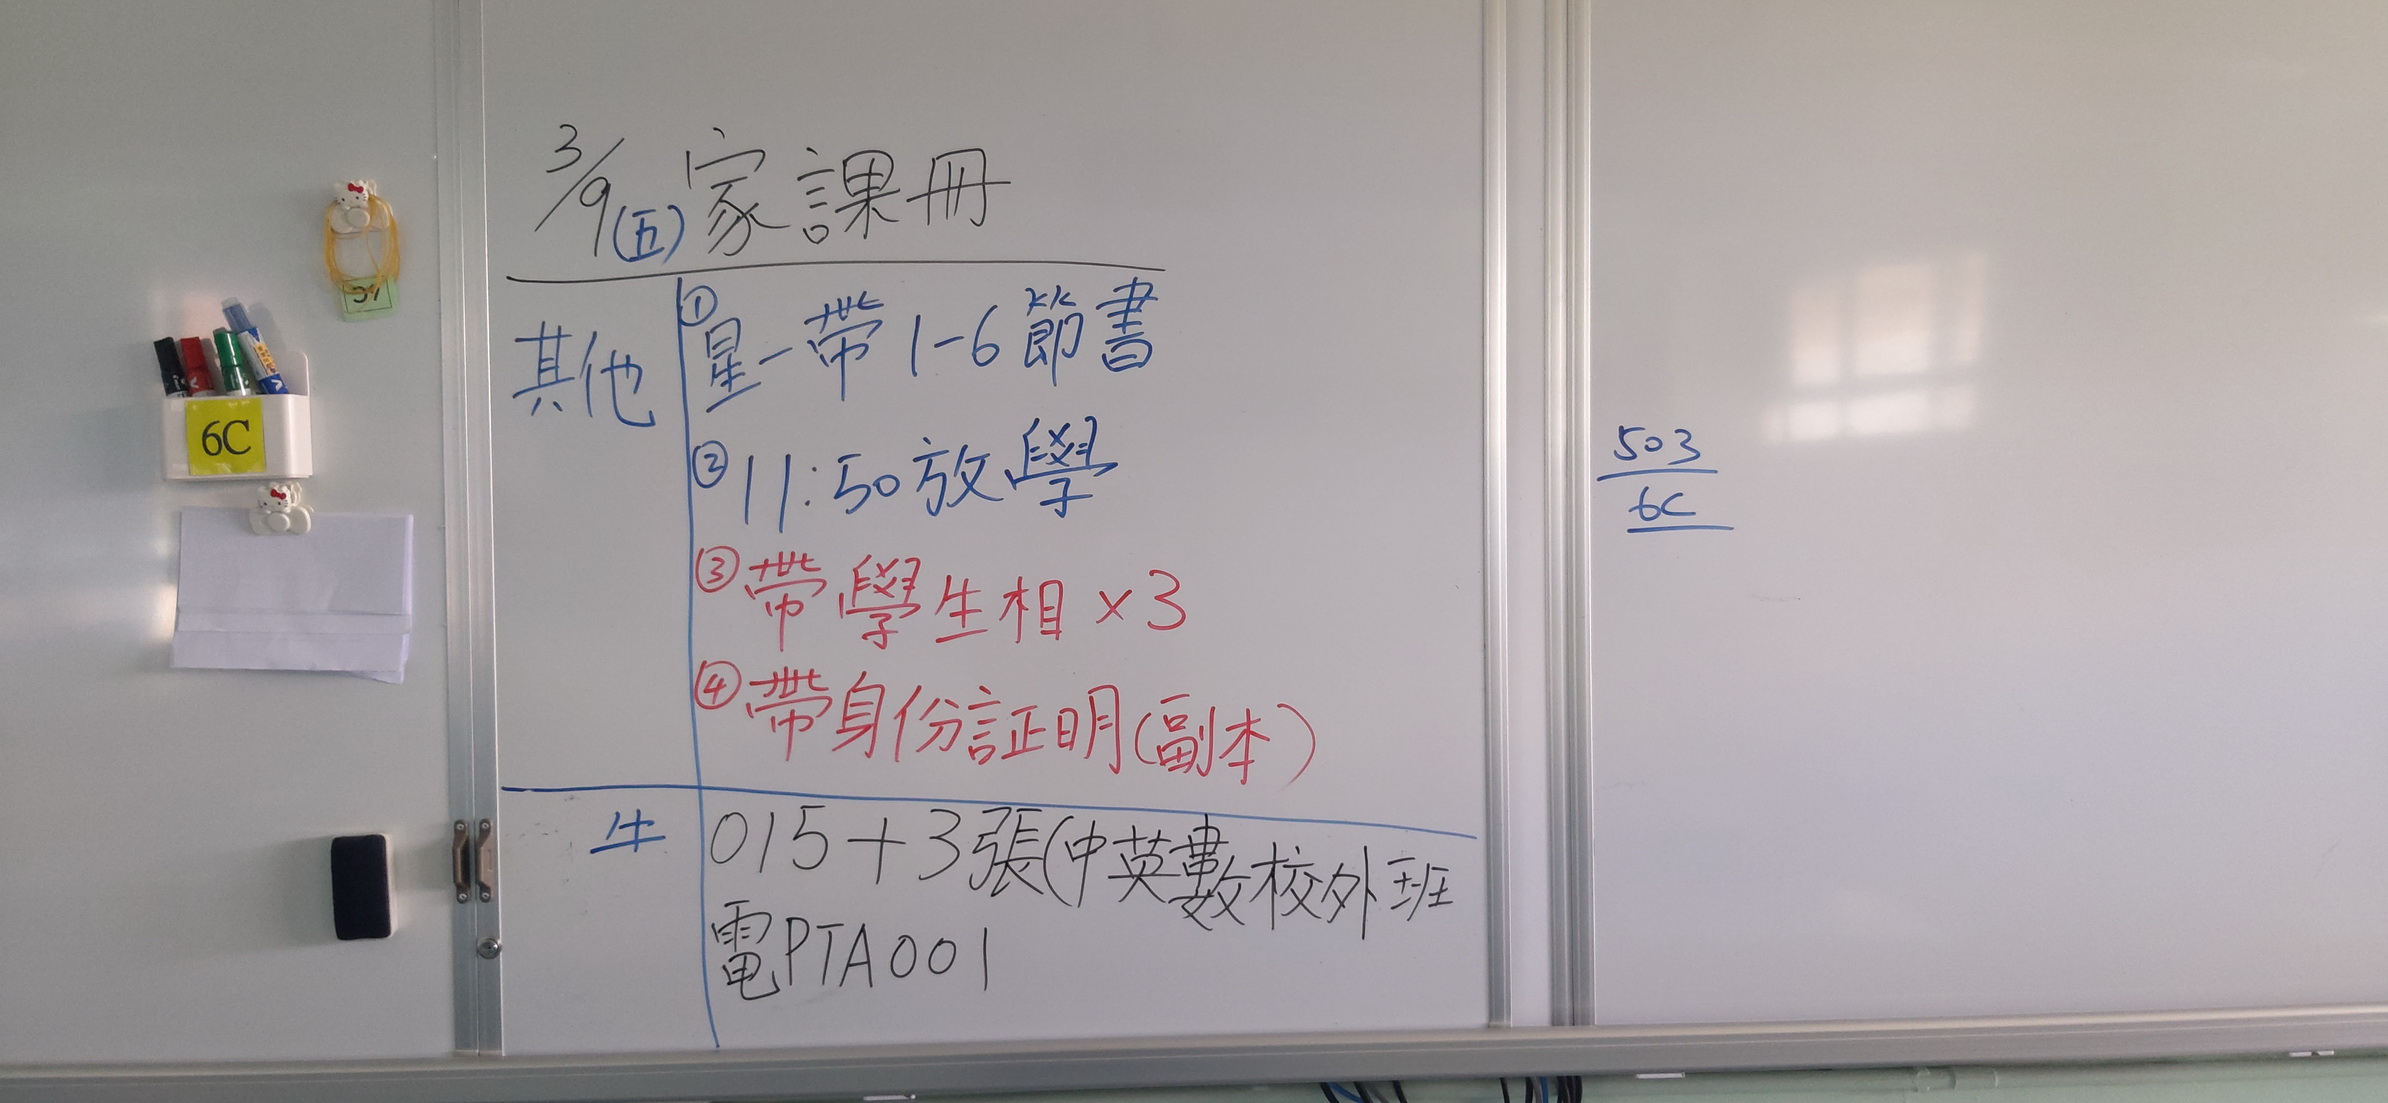 3/9(五)家課冊
其他
①星一帶1-6節書
②11:50放學
③帶學生相×3
④帶身份証明(副本)
015+3張(中英數校外班
電PTA001
6C
503
6C